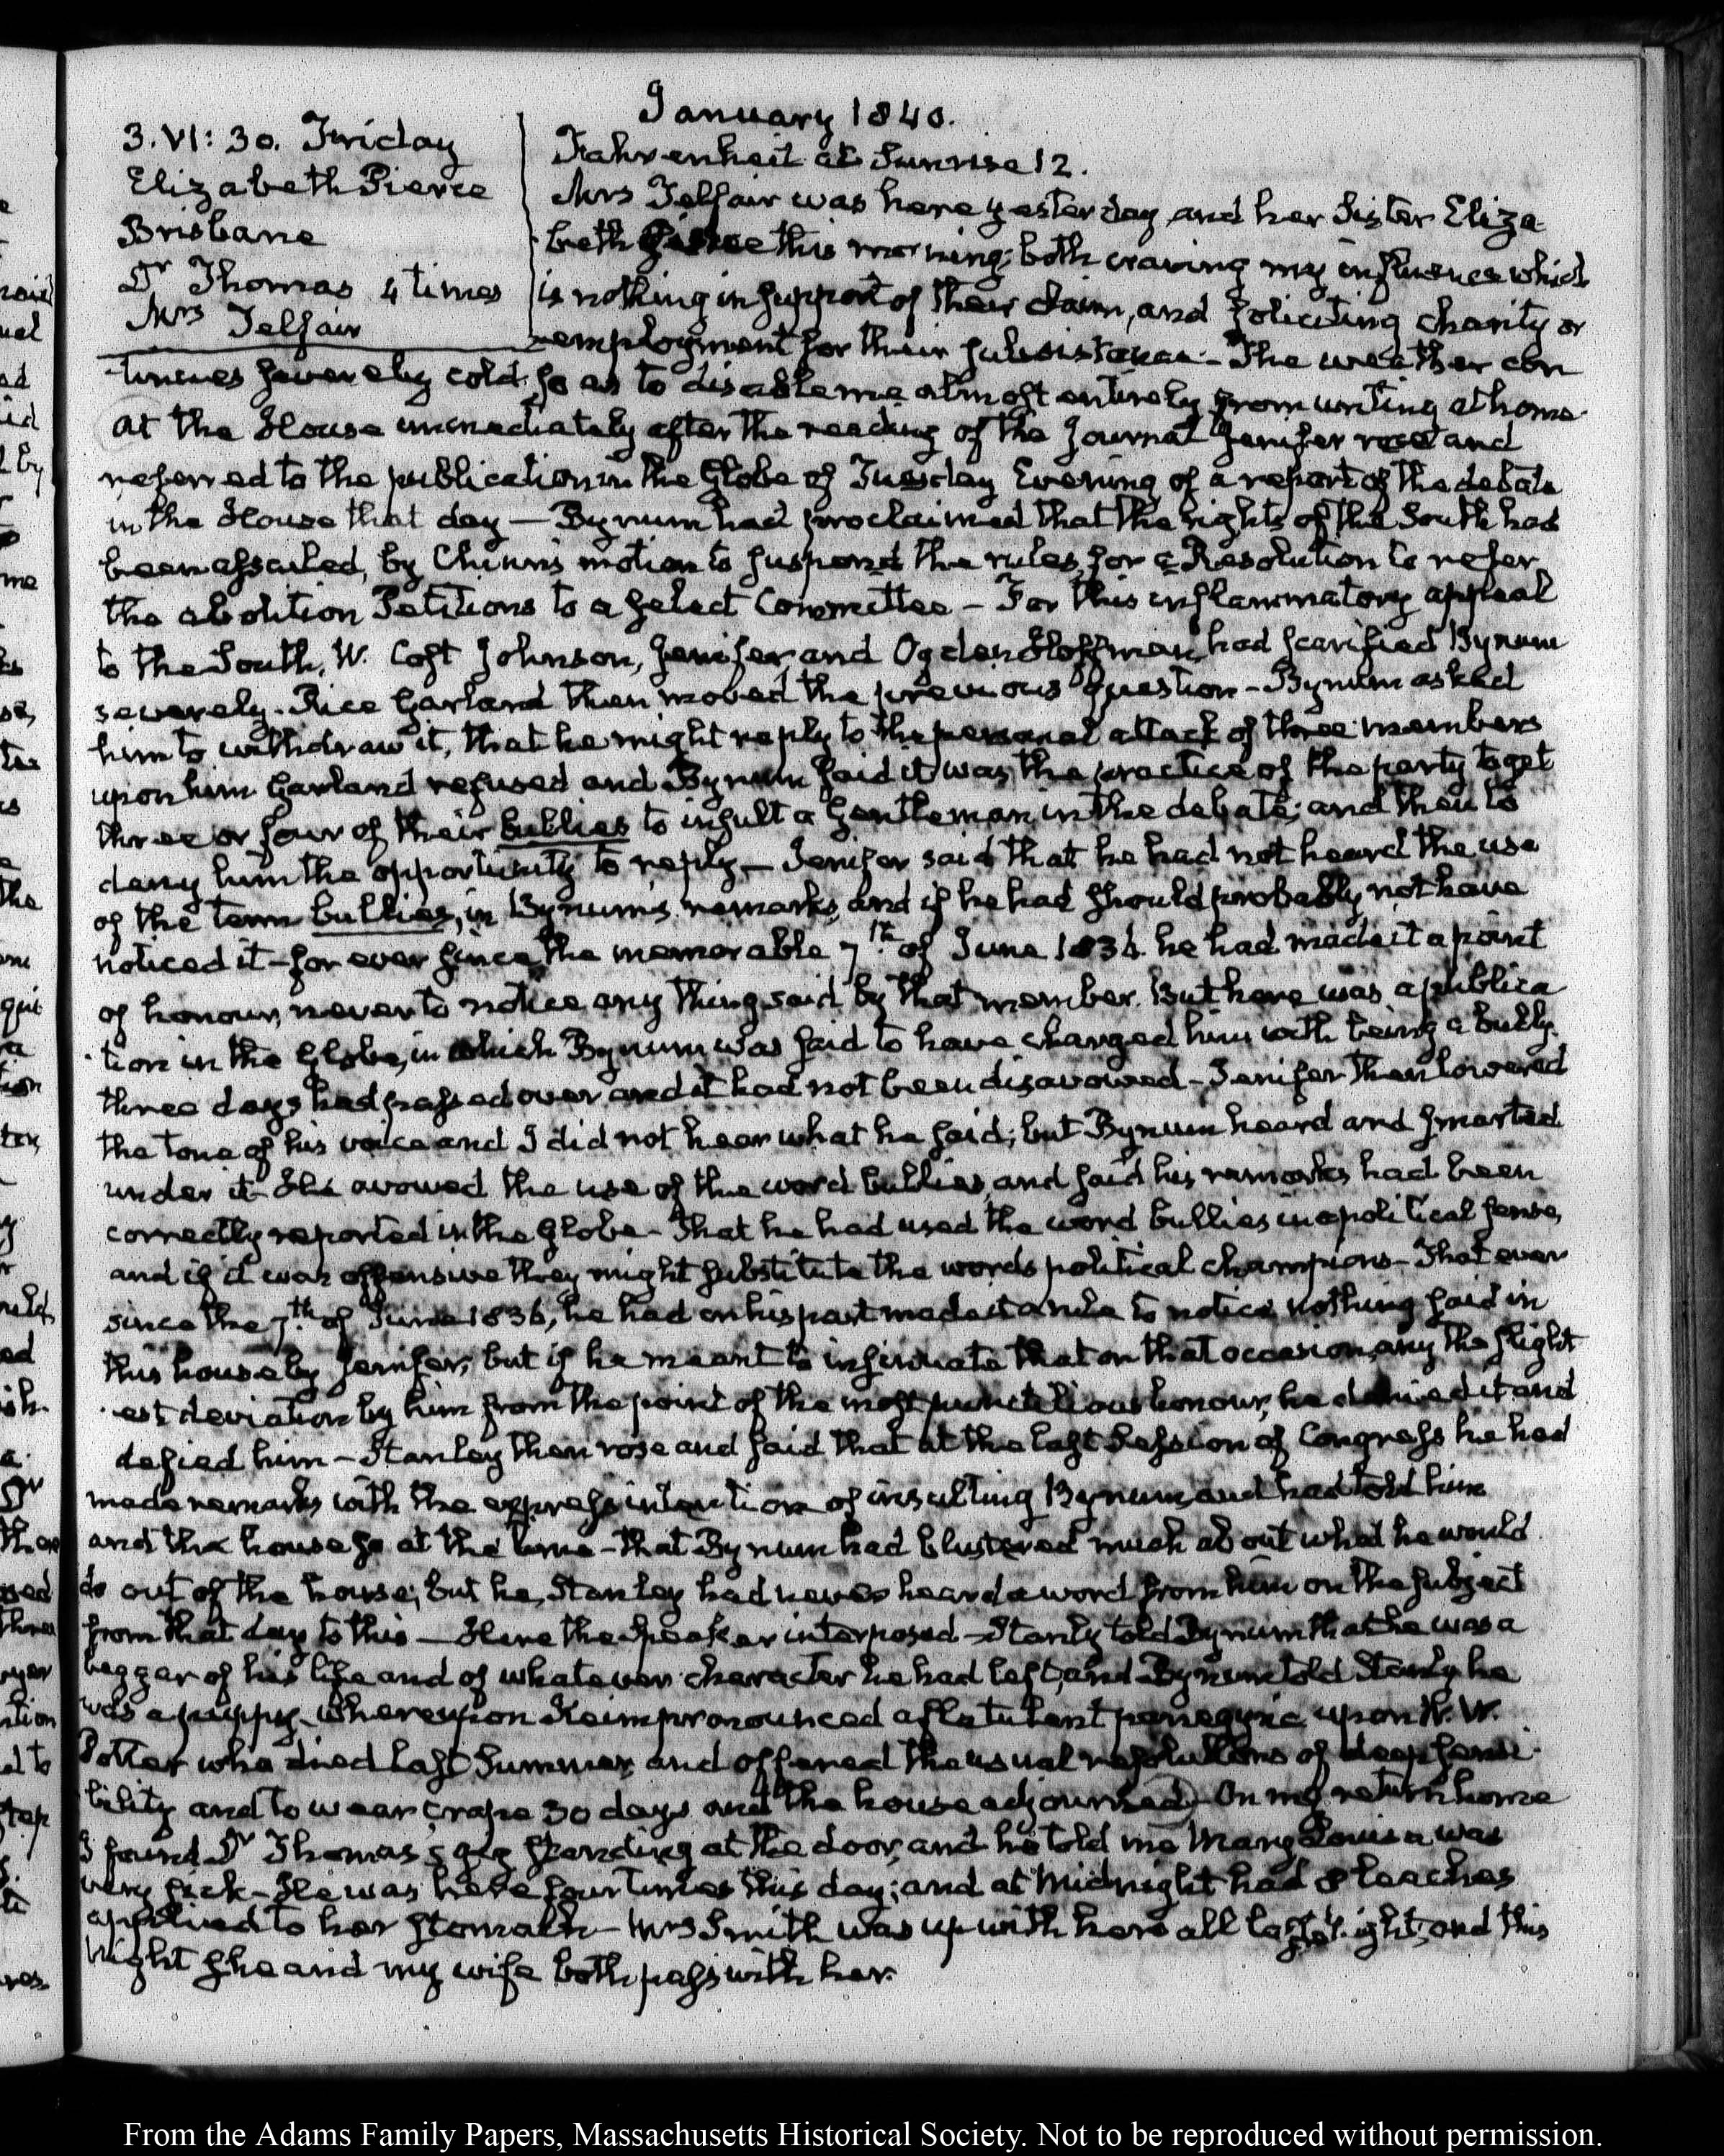 January 1840.
3. VI: 30. Friday
Elizabeth Pierce
Brisbane
Dr Thomas 4 times
Mrs Telfair
Fahrenheit at Sunrise 12.
Mrs Telfair was here yesterday and her Sister Eliza-
beth Pierce this morning; both craving my influence which
is nothing in support of their claim, and soliciting charity or
employment for their subsistence — The weather con
tinues severely cold, so as to disable me almost entirely from writing at home.
At the House immediately after the reading of the Journal Jenifer rose and
referred to the publication in the Globe of Tuesday Evening of a report of the debate
in the House that day — Bynum had proclaimed that the rights of the South had
been assailed, by Chinn's motion to suspend the rules for a Resolution to refer
the abolition Petitions to a select Committee — For this inflammatory appeal
to the South, W. Cost Johnson, Jenifer, and Ogden Hoffman, had scarified Bynum
severely. Rice Garland then moved the previous question — Bynum asked
him to withdraw it, that he might reply to the personal attack of three members
upon him Garland refused and Bynum said it was the practice of the party to get
three or four of their bullies to insult a Gentleman in the debate; and then to
deny him the opportunity to reply — Jenifer said that he had not heard the use
of the term bullies, in Bynum's remarks, and if he had should probably not have
noticed it — for ever since the memorable 7th of June 1836. he had made it a point
of honour, never to notice any thing said by that member. But here was a publica
tion in the Globe, in which Bynum was said to have charged him with being a bully.
three days had passed over and it had not been disavowed — Jenifer then lowered
the tone of his voice and I did not hear what he said; but Bynum heard and smarted
under it — He avowed the use of the word bullies, and said his remarks had been
correctly reported in the Globe — That he had used the word bullies in a political sense,
and if it was offensive they might substitute the words political champions — That ever
since the 7th of June 1836, he had on his part made it a rule to notice nothing said in
this house by Jenifer; but if he meant to insinuate that on that occasion, any the slight
est deviation by him from the point of the most punctilious honour, he denied it and
defied him — Stanley then rose and said that at the last Session of Congress he had
made remarks with the express intention of insulting Bynum, and had told him
and the house so at the time — that Bynum had blustered much about what he would
do out of the house; but he, Stanley had never heard a word from him on the subject
from that day to this — Here the Speaker interposed — Stanly told Bynum that he was a
beggar of his life and of whatever character he had left, and Bynum told Stanly he
was a puppy — Whereupon Keim pronounced a flatulent panegyric upon W. W.
Potter who died last Summer, and offered the usual resolutions of deep sensi
bility and to wear crape 30 days and the house adjourned) On my return home
I found Dr Thomas's gig standing at the door, and he told me Mary Louisa was
very sick — He was here four times this day; and at Midnight had 8 leaches
applied to her stomach — Mrs Smith was up with here all last night; and this
Night she and my wife both pass with her.
From the Adams Family Papers, Massachusetts Historical Society. Not to be reproduced without permission.